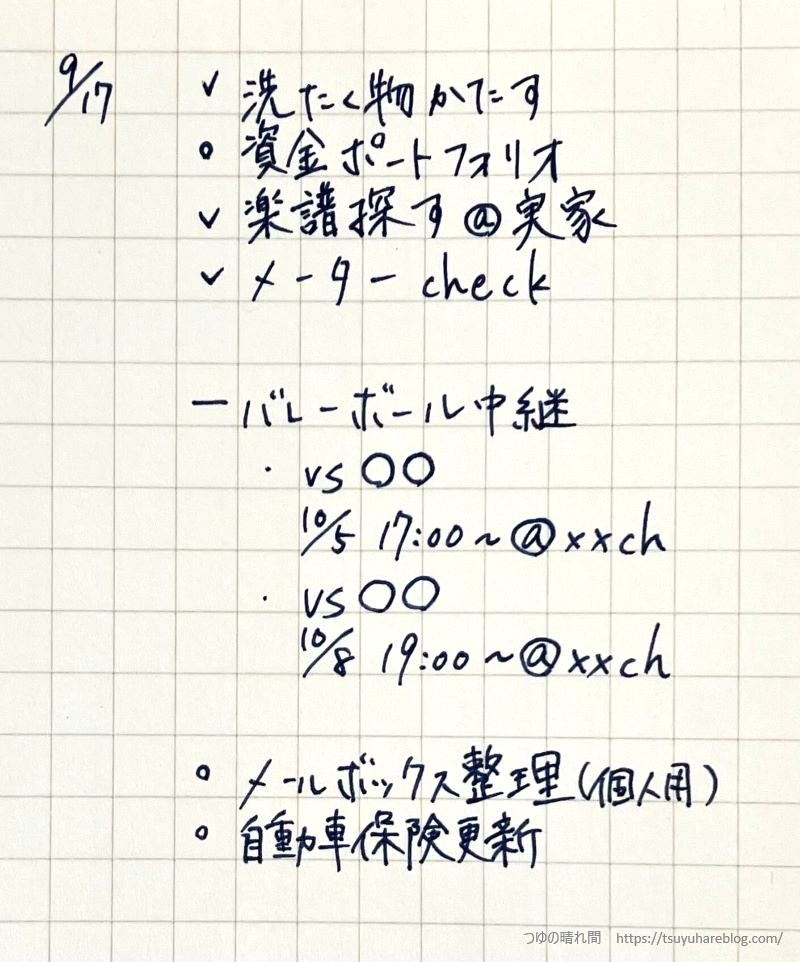 9/17 ✓ 洗たく物かたす
○ 資金ポートフォリオ
✓ 楽譜探す@実家
✓ メーター check
ー バレーボール中継
・ vs ○○
10/5 17:00~@xxch
・ vs ○○
10/8 19:00~@xxch
○ メールボックス整理(個人用)
○ 自動車保険更新
つゆの晴れ間 https://tsuyuhareblog.com/